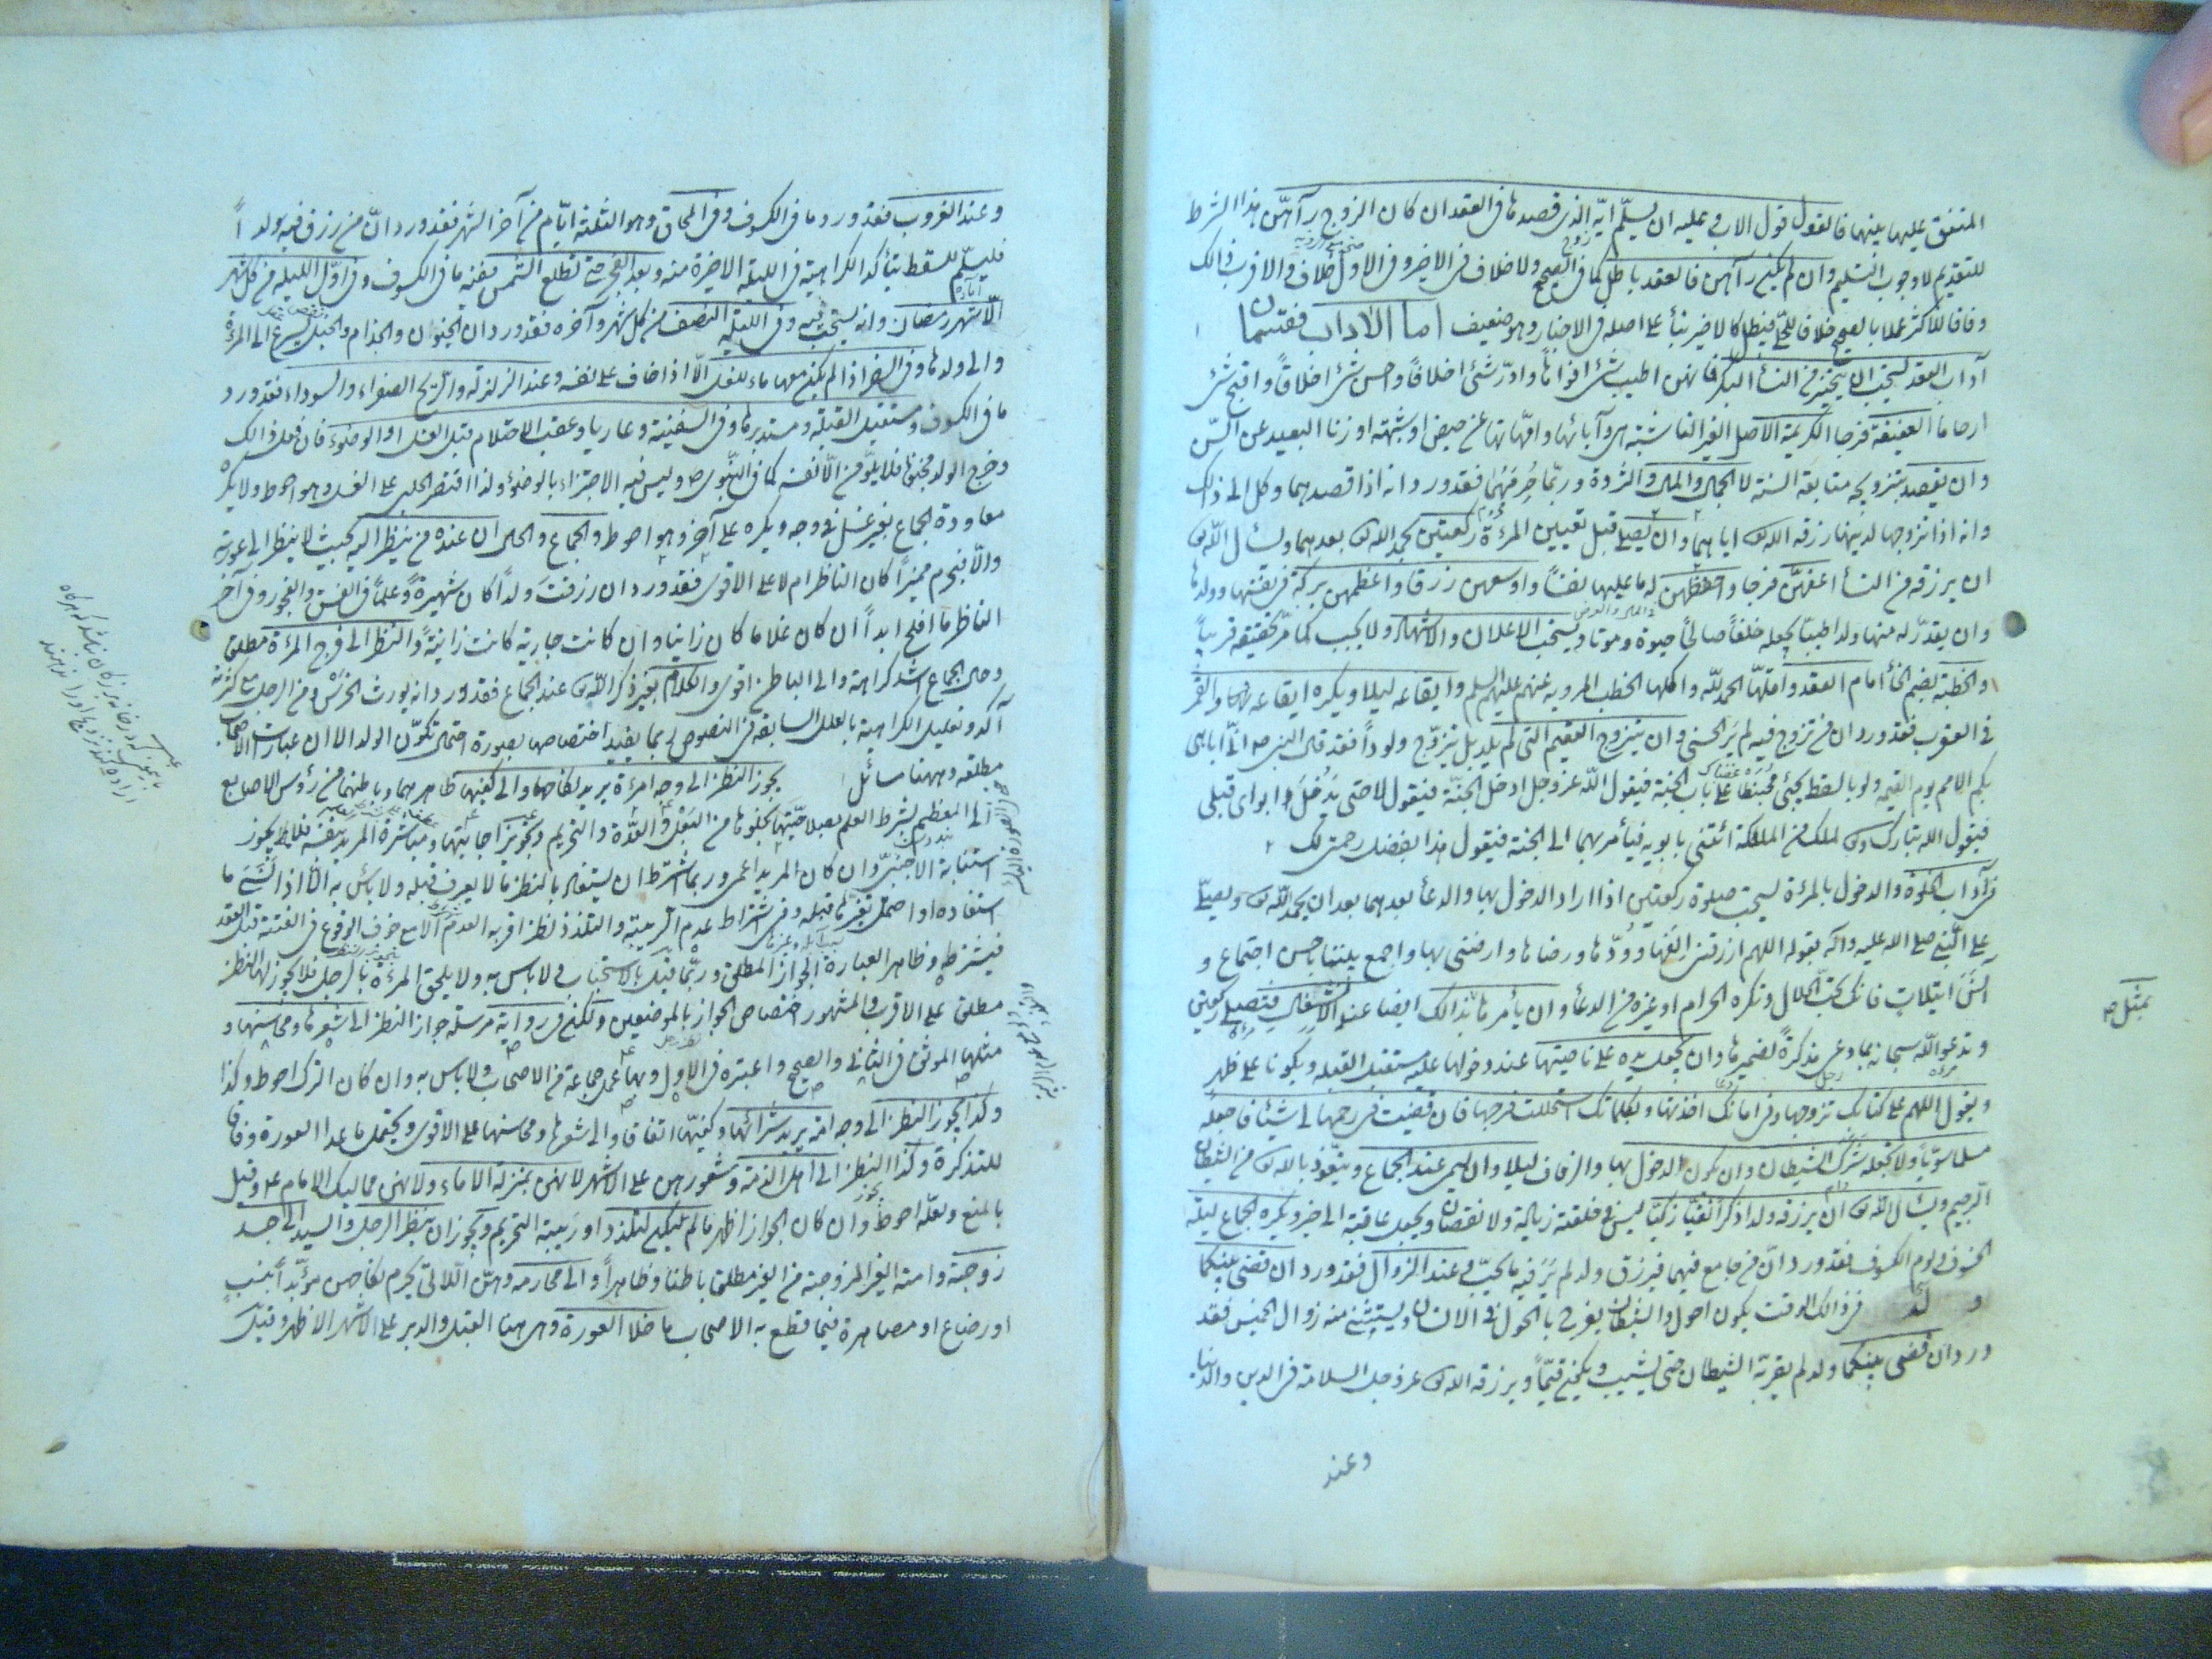 المتفق عليها بينهما فالقول قول الاب وعليه ان يسلّم اليه الذى قصدها فى العقد ان كان الزوج رآهنّ هذا الشرط
للتقديم لا وجوب التسليم وان لم يكن رآهن فالعقد باطل كما فى الصحيح ولا خلاف فى الاخير وفى الاول خلاف والاقرب ذلك
وفاقا للاكثر عملا بالصحيح خلافا للحلّى فيبطل كالاخير بناء على اصله فى الاخبار وهو ضعيف اما الآداب فقسمان
آداب العقد يستحب ان يتخير من النساء البكر فانهن اطيب شئ افواها وادرّ شئ اخلافاً واحسن شئ اخلاقاً وافتح شئ
ارحاما العفيفة فرجا الكريمة الاصل الغير الناشئة هى وآبائها وامّهاتها عن حيض او شبهة او زنا البعيد عن السّن
وان يقصد بتزويجه متابعة السنة لا الجمال والمال والثروة وربّما حُرِمَهُما فقد ورد انه اذا قصدهما وكل الى ذلك
وانه اذا تزوجها لدينها رزقه الله تع اياهما وان يصلى قبل تعيين المرءة ركعتين يحمد الله تع بعدهما ويسئال الله تع
ان يرزقه من النساء اعفهنّ فرجا واحفظهن له ما عليها نفساً واوسعهن رزقا واعظمهن بركة فى نفسها وولدها
وان يقدّر له منها ولدا طيبا يجعله خلفاً صالحاً حيوة وموتا ويستحب الاعلان والاشهاد ولا يجب كما مرّ تحقيقه قريباً
والخطبة بضم الخاء امام العقد واقلّها الحمد لله واكملها الخطب المروية عنهم عليهم السلم وايقاعه ليلا ويكره ايقاعه والقمر
فى العقرب فقد ورد ان من تزوج فيه لم ير الحسنى وان يتزوج العقيم التى لم يلد بل يتزوّج ولوداً فقد قال النبى ص انّى اباهى
بكم الامم يوم القيمة ولو بالسقط يجئ محبنطأ على باب الجنة فيقول الله عز وجل ادخل الجنّة فيقول لا حتى يَدْخُلَ ابواى قبلى
فيقول الله تبارك وتع لملك من الملئكة ائتنى بابويه فيأمر بهما الى الجنة فيقول هذا بفضل رحمتى لك
من آداب الخلوة والدخول بالمرءة يستحب صلوة ركعتين اذا اراد الدخول بها والدعاء بعدهما بعد ان يحمد الله تع ويصلّى
على النّبى صلى الله عليه وآله بقوله اللهم ارزقنى اِلفها ووُدّها ورضاها وارضنى بها واجمع بيننا باحسن اجتماع و
آنس ايتلاف فانك تحبّ الحلال وتكره الحرام او غيره من الدعاء وان يأمرها بذلك ايضا عند الانتقال فتصلى ركعتين
وتدعو الله سبحانه بما دعى مذكّرةً لضميرها وان يجعل يده على ناصيتها عند دخولها عليه مستقبل القبلة ويكونا على طهر
ويقول اللهم على كتابك تزوجتها وفى امانتك اخذتها وبكلماتك استحللت فرجها فان قضيت فى رحمها لى شيئا فاجعله
مسلما سويّا ولا تجعله شرك الشيطان وان يكون الدخول بها والزفاف ليلا وان يسمى عند الجماع ويتعوّذ بالله تع من الشيطان
الرجيم ويسئال الله تع ان يرزقه ولدا ذكراً تقيّا زكيّا ليس فى خلقته زيادة ولا نقصان ويجعل عاقبته الى خير ويكره الجماع ليلة
الخسوف ويوم الكسوف فقد ورد انّ من جامع فيهما فيرزق ولد لم يَرَ فيه ما يحبّ وعند الزوال فقد ورد ان قضى بينكما
ولد فى ذلك الوقت يكون احول والشيطان يفرح بالحول فى الانسان ويستثنى منه زوال الخميس فقد
ورد ان قضى بينكما ولد لم يقربه الشيطان حتى يشيب ويكون قيّماً ويرزقه الله تع عز وجل السلامة فى الدين والدنيا
وعند
وعند الغروب فقد ورد ما فى الكسوف وفى المحاق وهو الثلثة ايّام من آخر الشهر فقد ورد انّ من رزق فيه ولداً
فليسلّم للسقط يتأكد الكراهية فى الليلة الاخيرة منه وبعد الفجر حتى تطلع الشمس ففيه ما فى الكسوف وفى اوّل الليلة من كل شهر
الّا شهر رمضان وانه يستحب فيه وفى الليلة النصف من كل شهر وآخره فقد ورد ان الجنون والجذام والخبل يسرع الى المرءة
والى ولدها وفى السفر اذا لم يكن معهما ماء للغسل الّا اذا خاف على نفسه وعند الزلزلة والريح الصفراء والسوداء فقد ورد
ما فى الكسوف ومستقبل القبلة ومستدبرها وفى السفينة وعاريا وعقب الاحتلام قبل الغسل او الوضوء فان فعل ذالك
وخرج الولد مجنونا فلا يلومنّ الّا نفسه كما فى النّبوى ص وليس فيه الاجتزاء بالوضوء ولذا اقتصر الحلى على الغسل وهو احوط ولا يكره
معاودة الجماع بغير غسل فى وجه ويكره على آخر وهو احوط والجماع والحال ان عنده من ينظر اليه بحيث لا ينظر الى عورته
والّا فيحرم مميزاً كان الناظر ام لا على الاقوى فقد ورد ان رزقت ولداً كان شهيرة وعلماً فى الفسق والفجور وفى آخر
الناظر ما افلح ابداً ان كان غلاما كان زانيا وان كانت جارية كانت زانيةً والنظر الى فرج المرءة مطلق
وحال الجماع اشد كراهة والى الباطن اقوى والكلام بغير ذكر الله تع عند الجماع فقد ورد انه يورث الخرس ومن الرجل مع كثرته
آكد وتعليل الكراهية بالعلل السابقة فى النصوص ربما يفيد اختصاصها بصورة احتمال تكوّن الولد الا ان عبارت الاصحاب
مطلقه وههنا مسائل يجوز النظر الى وجه امرءة يريد نكاحها والى كفيها ظاهرهما وباطنهما من رؤس الاصابع
الى المعظم بشرط العلم بصلاحيّتها بخلوها من البعل والعدّة والتحريم وتجويز اجابتها ومباشرة المريد بنفسه فلا يجوز
استنابة الاجنبىّ وان كان المريد اعمى وربما اشترط ان يستفاد بالنظر ما لا يعرف قبله ولا بأس به الّا اذا نسى ما
استفاده او احتمل تغيّر ما قبله وفى اشتراط عدم الرّيبة والتلذذ نظر اقربه العدم الا مع خوف الوقوع فى الفتنة قبل العقد
فيشترط وظاهر العبارة الجواز المطلق وربّما قيل بالاستحباب ولا باس به ولا يلحق المرءة بالرجل فلا يجوز لها النظر
مطلق على الاقرب والمشهور اختصاص الجواز بالموضعين ولكن فى رواية مرسلة جواز النظر الى شعرها ومحاسنها و
مثلها الموثق فى الثانى والصحيح واعتبره فى الاول وبهما عمل جماعة من الاصحاب ولا باس به وان كان الترك احوط وكذا
وكذا يجوز النظر الى وجه امة يريد شرائها وكفيّها اتفاقا والى شعرها ومحاسنها على الاقوى ويحتمل ما عدا العورة وفاقا
للتذكرة وكذا النظر الى اهل الذمة وشعورهن على الاشهر لانهن بمنزلة الاماء ولانهن مماليك الامام ع وقيل
بالمنع ولعلّه احوط وان كان الجواز اظهر ما لم يكن لتلذذ او ريبة التحريم ويجوز ان ينظر الرجل والسيد الى جسد
زوجته وامته الغير المزوجة من الغير مطلق باطنا وظاهراً والى محارمه وهنّ اللاتى يحرم نكاحهن مؤبّداً بنسب
او رضاع او مصاهرة فيما قطع به الاصحاب ما خلا العورة وهى هنا القبل والدبر على الاشهر الاظهر وقيل